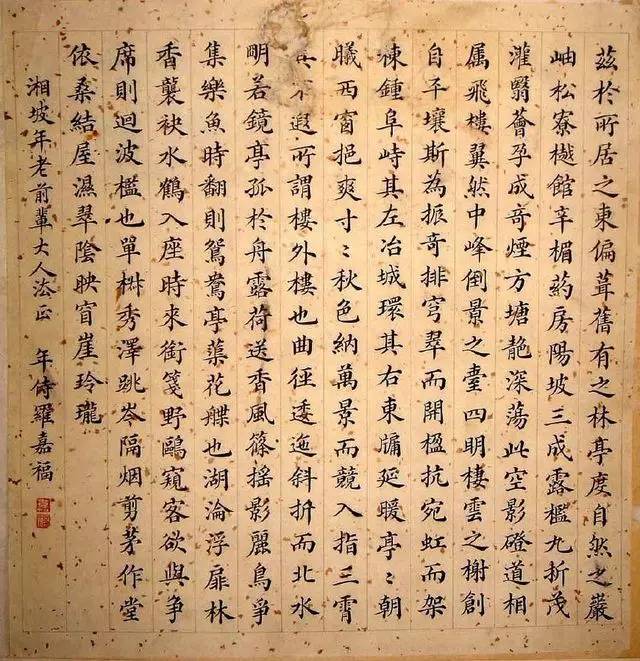 茲於所居之東偏葺舊有之林亭度自然之巖
岫松寮樾館辛楣葯房陽坡三成露檻九折茂
灌翳薈孕成奇煙方塘靘深蕩此空影磴道相
属飛樓翼然中峰倒景之臺四明棲雲之榭創
自平壤斯為振奇排穹翠而開楹抗宛虹而架
棟鍾阜峙其左冶城環其右東牖延暖亭〻朝
曦西窗挹爽寸〻秋色納萬景而競入指三霄
不遐所謂樓外樓也曲徑逶迤斜折而北水
朙若鏡亭孤於舟露荷送香風篠搖影麗鳥爭
集樂魚時翻則鴛鴦亭蕖花艓也湖淪浮扉林
香襲袂水鶴入座時來銜箋野鷗窺客欲與爭
席則迴波檻也單椒秀澤跳岑隔烟剪茅作堂
依桑結屋濕翠陰映窅崖玲瓏
湘坡年老前輩大人法正 年侍羅嘉福